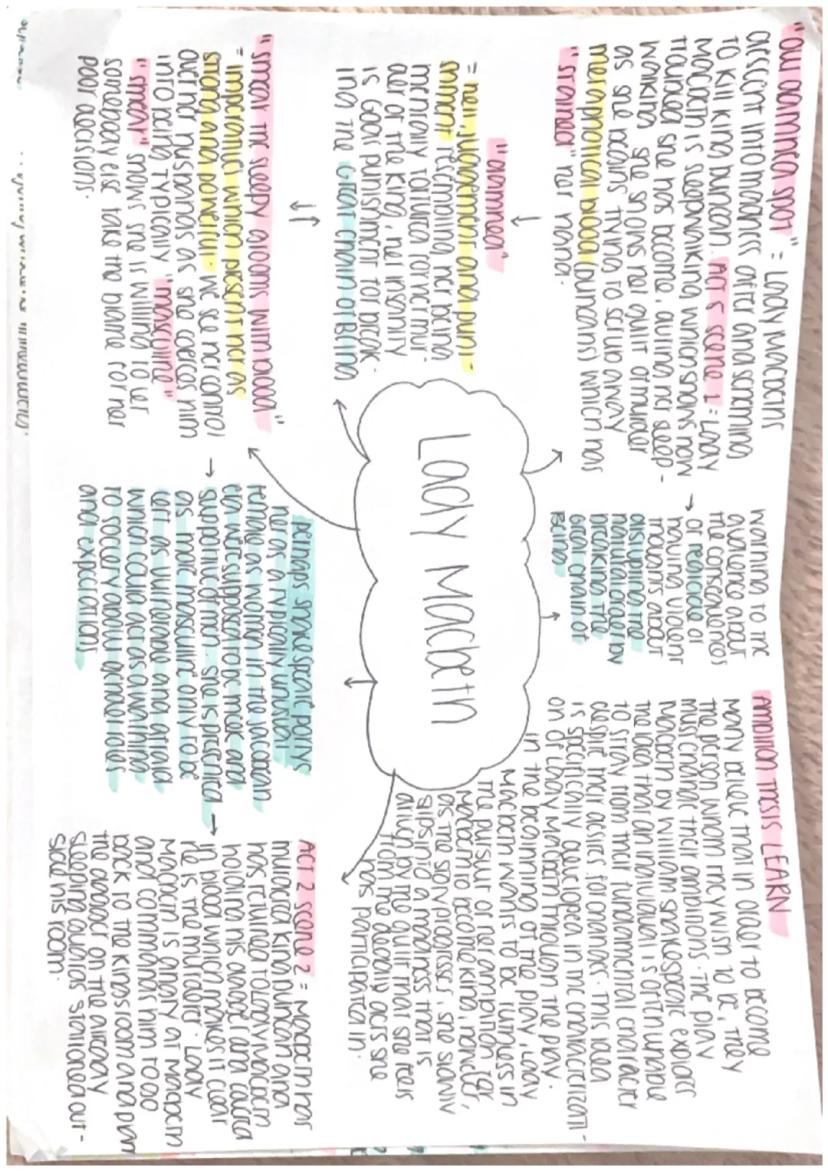 "out damned spot" = Lady Macbeth's
descent into madness after and scheming
to kill King Duncan. Act 5 scene 1 = Lady
Macbeth is sleepwalking which shows how
troubled she has become, during her sleep-
walking she shows her guilt of murder
as she begins trying to scrub away
metaphorical blood (Duncans) which has
"stained" her hand.
warning to the
audience about
the consequences
→ of regicide or
having violent
thoughts about
disrupting the
natural order by
breaking the
Great chain of
Being
AMBITION THESIS LEARN
Many believe that in order to become
the person whom they wish to be, they
must change their ambitions. The play
Macbeth by William Shakespeare explores
the idea that an individual is often unable
to stray from their fundamental character
despite their desires for change. This idea
is specifically developed in the characterizati-
on of Lady Macbeth through the play.
In the beginning of the play, Lady
Macbeth wants to be ruthless in
the pursuit of her ambition for
Macbeth to become king, however,
as the story progresses, she slowly
slips into a madness that is
driven by the guilt that she feels
from the deadly acts she
has participated in.
Lady Macbeth
"damned"
= hell, judgement and puni-
shment resembling her being
mentally tortured for the mur-
der of the King, her insanity
is Gods punishment for break-
ing the Great Chain of Being
"smear the sleepy grooms with blood"
= imperatives which present her as
strong and powerful. We see her control
over her husbands as she coerces him
into being typically "masculine"
"smear" shows she is willing to let
somebody else take the blame for her
poor decisions.
→ perhaps Shakespeare portrays
her as a typically unusual
female as women in the Jacobean
era were supposed to be meek and
supportive of men. She is presented
as more masculine only to be
left as vulnerable and afraid
which could act as a warning
to society about gender roles
and expectations
ACT 2 scene 2 = Macbeth has
murdered King Duncan and
has returned to Lady Macbeth
→ holding his dagger and caked
in blood which makes it clear
he is the murderer. Lady
Macbeth is angry at Macbeth
and commands him to go
back to the kings room and plant
the dagger on the already
sleeping guards stationed out-
side his room.